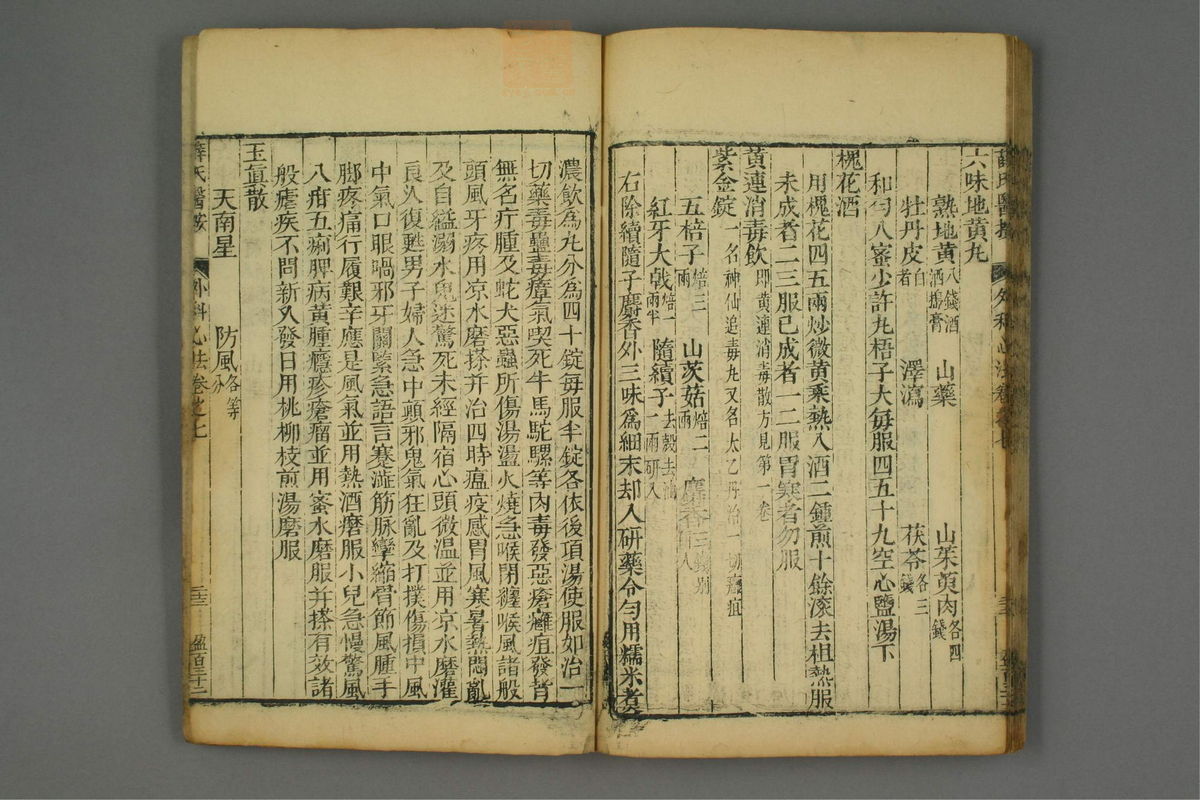 薛氏醫按 外科心法卷之七
六味地黃丸
熟地黃八錢酒酒搗膏 山藥 山茱萸肉各四錢
牡丹皮白者 澤瀉 茯苓各三錢
和勻入蜜少許丸梧子大每服四五十丸空心鹽湯下
槐花酒
用槐花四五兩炒微黃乘熱入酒二鍾煎十餘滾去柤熱服
未成者二三服已成者一二服胃寒者勿服
黃連消毒飲即黃連消毒散方見第一卷
紫金錠一名神仙追毒丸又名太乙丹治一切癰疽
五棓子焙三兩 山茨菇焙二兩 麝香三錢別入
紅牙大戟焙一兩半 隨續子去殼去油一兩研入
右除續隨子麝香外三味為細末却入研藥令勻用糯米煮
濃飲為丸分為四十錠每服半錠各依後項湯使服如治一
切藥毒蠱毒瘴氣喫死牛馬駝騾等肉毒發惡瘡癰疽發背
無名疔腫及蛇犬惡蟲所傷湯盪火燒急喉閉纏喉風諸般
頭風牙疼用凉水磨搽并治四時瘟疫感冒風寒暑熱悶亂
及自縊溺水鬼迷驚死未經隔宿心頭微溫並用凉水磨灌
良久復甦男子婦人急中顛邪鬼氣狂亂及打撲傷損中風
中氣口眼喎邪牙關緊急語言蹇澁筋脉攣縮骨節風腫手
脚疼痛行履艱辛應是風氣並用熱酒磨服小兒急慢驚風
八疳五痢脾病黃腫癮疹瘡瘤並用蜜水磨服并搽有效諸
般瘧疾不問新久發日用桃柳枝煎湯磨服
玉眞散
天南星 防風各等分
薛氏醫按 外科心法卷之七 三三 盈百三十二